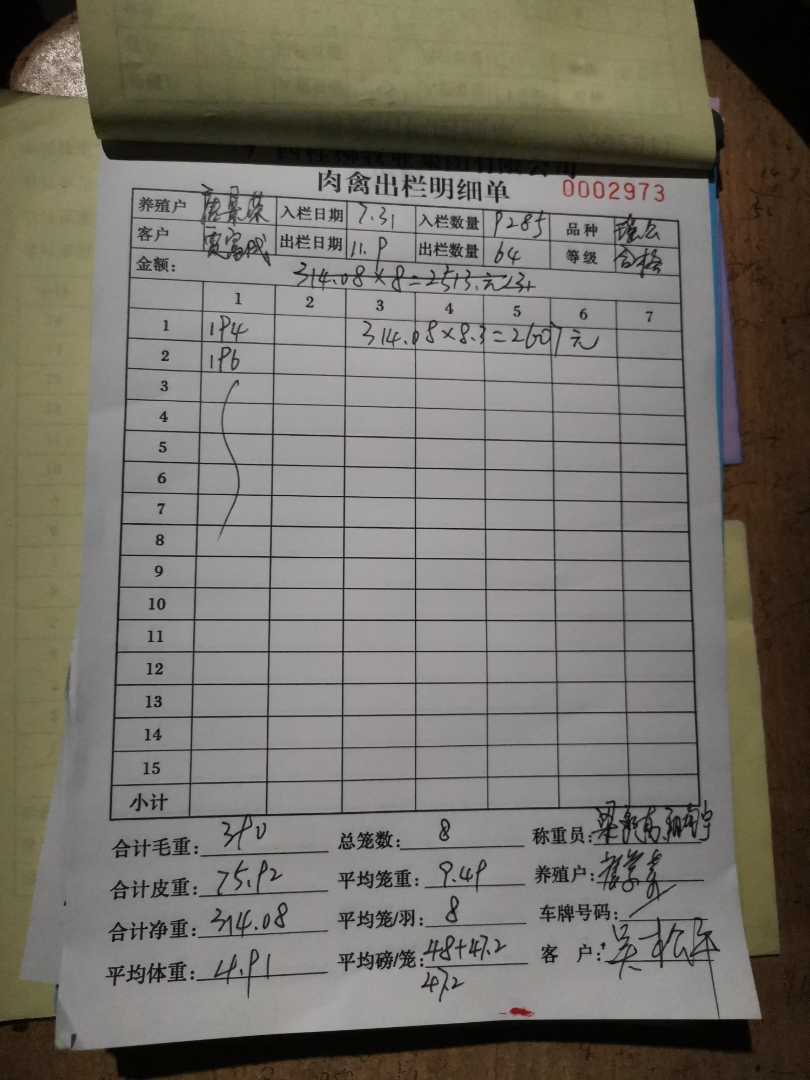 肉禽出栏明细单 0002973
养殖户 入栏日期 7.31 入栏数量 9285 品种
客户 出栏日期 11.9 出栏数量 64 等级 合格
金额: 314.08×8=2513.元
1 2 3 4 5 6 7
1 194 314.08×8.3=2607元
2 196
3
4
5
6
7
8
9
10
11
12
13
14
15
小计
合计毛重: 390 总笼数: 8 称重员:
合计皮重: 75.92 平均笼重: 9.49 养殖户:
合计净重: 314.08 平均笼/羽: 8 车牌号码:
平均体重: 4.91 平均磅/笼: 48+47.2 客 户: 吴松年
47.2